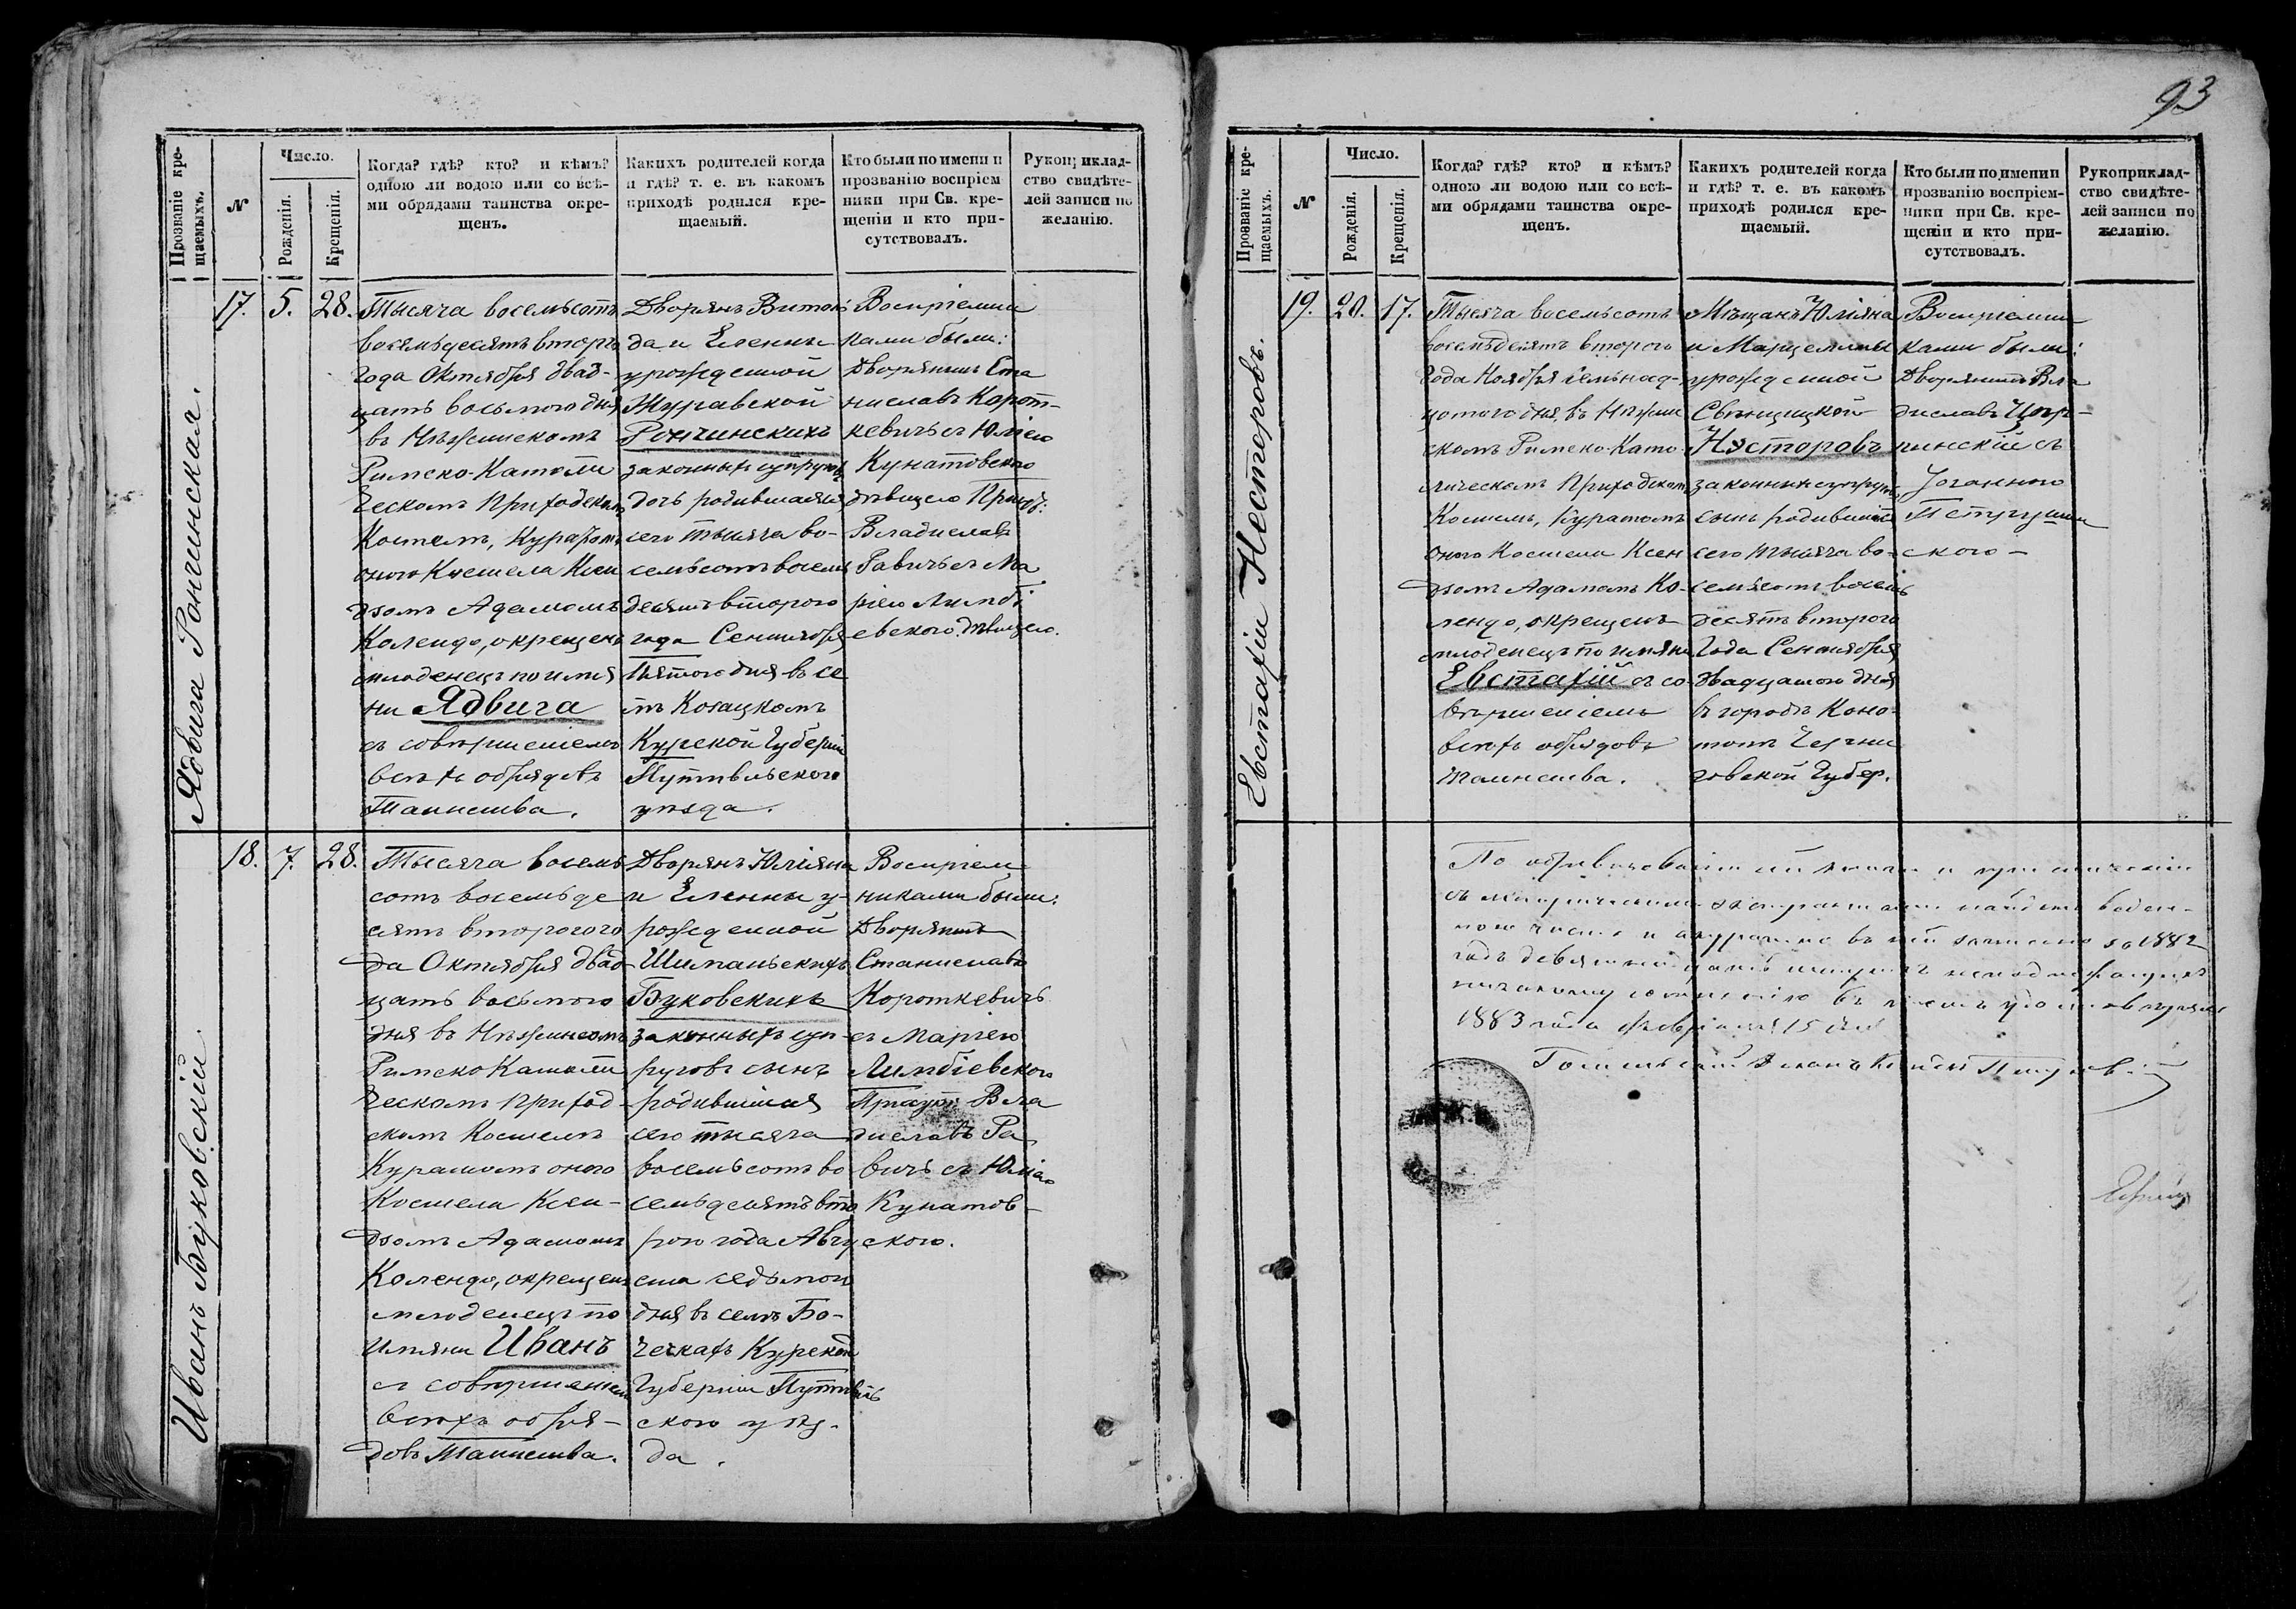 93
Прозваніе кре-
щаемыхъ.
N
Число.
Рожденія.
Крещенія.
Когда? гдѣ? кто? и кѣмъ?
одною ли водою или со всѣ-
ми обрядами таинства окре-
щенъ.
Каихъ родителей когда
и гдѣ? т. е. въ какомъ
приходѣ родился кре-
щаемый.
Кто были по имени и
прозванію воспріем
ники при Св. кре-
щеніи и кто при-
сутствовалъ.
Рукоприклад-
ство свидѣте-
лей записи по
желанію.
Ядвига Рончинская.
17.
5.
28.
Тысяча восемьсотъ
восемьдесятъ втораго
года Октября двад-
цать восьмого дня
въ Нѣжинскомъ
Римско-Католи
ческомъ Приходскомъ
Костелѣ, Куратомъ
оного Костела Ксен
дзомъ Адамомъ
Колендо, окрещенъ
младенецъ по имя
ни Ядвига
съ совершеніемъ
всѣхъ обрядовъ
Таинства.
Дворянъ Витоль
да и Елены
урожденной
Журавской
Рончинскихъ
законныхъ супруговъ
дочь родившаяся
сего тысяча во-
семьсотъ восемь
десятъ второго
года Сентября
пятого дня въ се
лѣ Козацкомъ
Курской Губерніи
Путивльского
уѣзда.
Воспріемни
ками были:
Дворянинъ Ста
ниславъ Корот-
кевичъ съ Юліею
Кунатовскою
дѣвицею Присут:
Владиславъ
Равичъ съ Ма
ріею Лимбі
евскою дѣвицею.
Иванъ Буковскій.
18.
7.
28.
Тысяча восемь
сотъ восемьде
сятъ второго го
да Октября двад
цать восьмого
дня въ Нѣжинскомъ
Римско Католи
ческомъ Приход
скомъ Костелѣ
Куратомъ оного
Костела Ксен-
дзомъ Адамомъ
Колендо, окрещенъ
младенецъ по
имяни Иванъ
съ совершеніемъ
всѣхъ обря-
довъ Таинства.
Дворянъ Юліяна
и Елены у-
рожденной
Шиманьскихъ
Буковскихъ
законныхъ суп-
руговъ сынъ
родившійся
сего тысяча
восемьсотъ во
семьдесятъ вто
рого года Авгу
ста седьмого
дня въ селѣ Бо-
чечкахъ Курской
Губерніи Путивль
ского уѣз-
да.
Воспріем-
никами были:
Дворянинъ
Станиславъ
Короткевичъ
съ Маріею
Лимбіевскою
Присут: Вла
диславъ Ра
вичъ съ Юліею
Кунатов-
скою.
Прозваніе кре-
щаемыхъ.
N
Число.
Рожденія.
Крещенія.
Когда? гдѣ? кто? и кѣмъ?
одною ли водою или со всѣ-
ми обрядами таинства окре-
щенъ.
Какихъ родителей когда
и гдѣ? т. е. въ какомъ
приходѣ родился кре-
щаемый.
Кто были по имени и
прозванію воспріем-
ники при Св. кре-
щеніи и кто при-
сутствовалъ.
Рукоприклад-
ство свидѣте-
лей записи по
желанію.
Евстафій Несторовъ.
19.
20.
17.
Тысяча восемьсотъ
восемьдесятъ второго
года Ноября семнад-
цотого дня, въ Нѣжин
скомъ Римско-Като
лическомъ Приходскомъ
Костелѣ, Куратомъ
оного Костела Ксен
дзомъ Адамомъ Ко-
лендо, окрещенъ
младенецъ по имяни
Евстафій съ со-
вершеніемъ
всѣхъ обрядовъ
таинства.
Мѣщанъ Юліяна
и Марцелины
урожденной
Свѣнцицкой
Несторовъ
законныхъ супруговъ
сынъ родившійся
сего тысяча во-
семьсотъ восемь
десятъ второго
Года Сентября
двадцатого дня
въ городѣ Коно-
топѣ Черни
говской Губер.
Воспріемни
ками были:
Дворянинъ Вла
диславъ
пинскій съ
Іоанною
скою-
По
съ
и въ ней записано за 1882
годъ
1883 года Февраля 15 дня